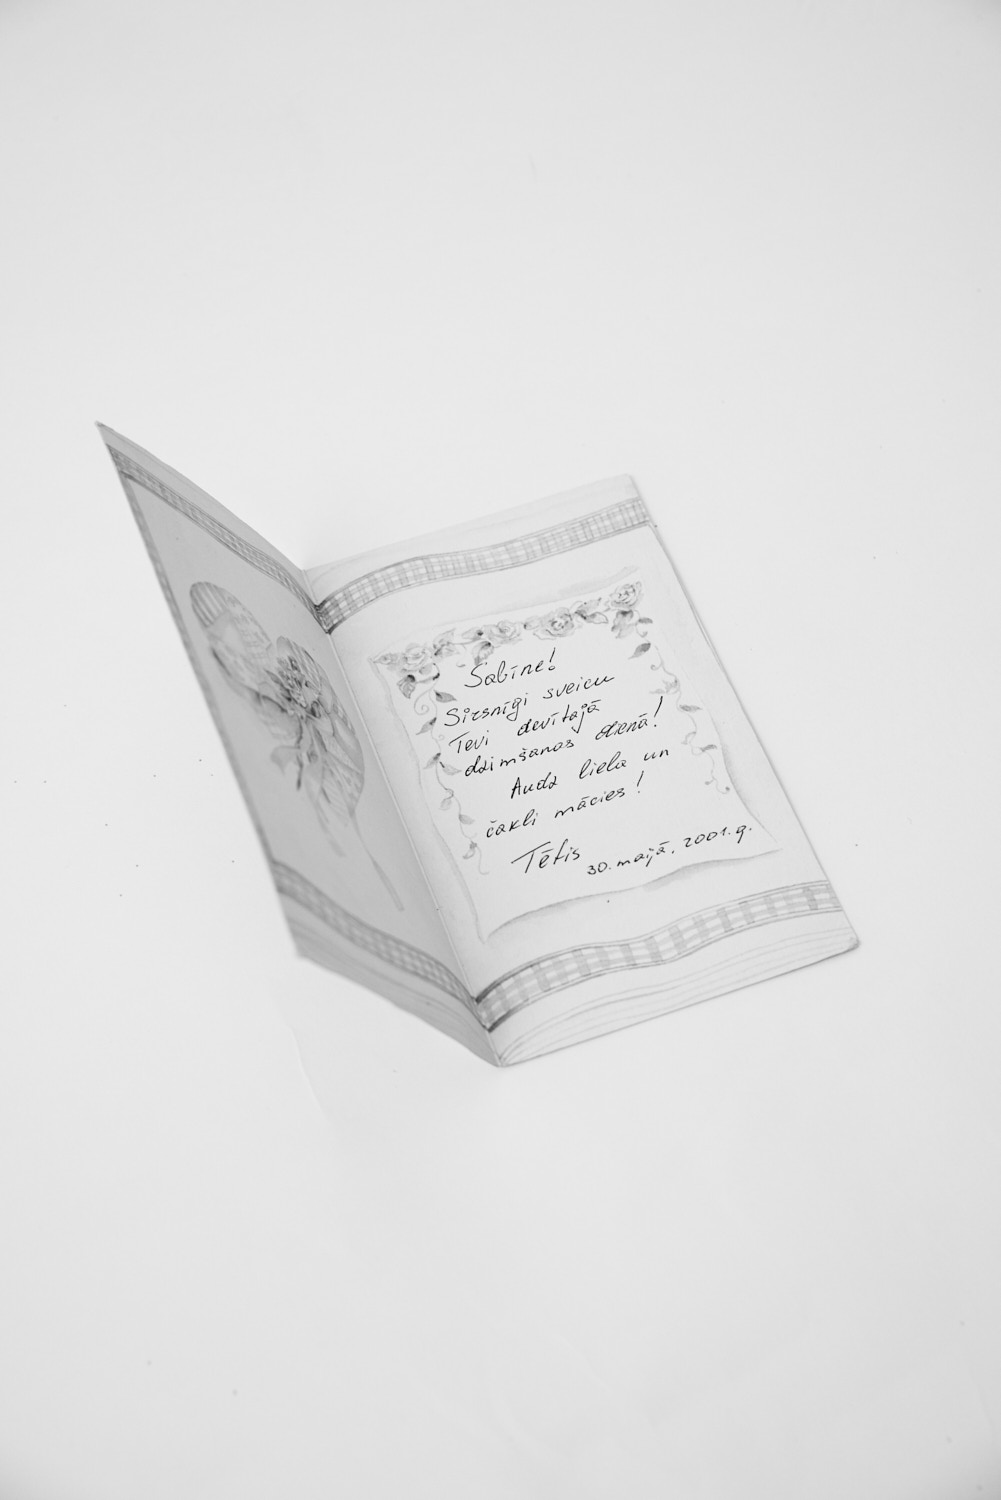 Sabīne!
Sirsnīgi sveicu
Tevi devītajā
dzimšanas dienā!
Audz liela un
čakli mācies!
Tētis
30. maijā, 2001.g.